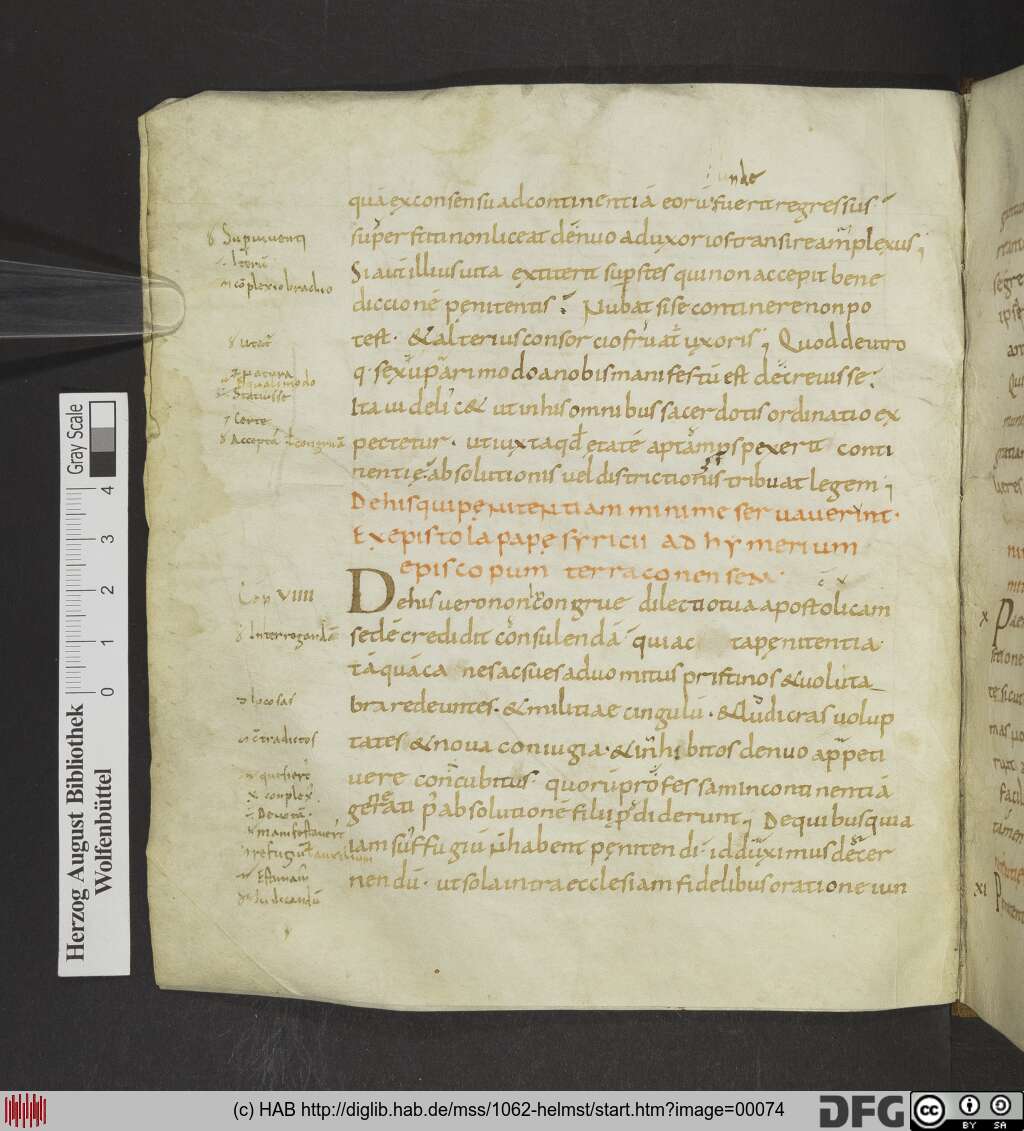 unde
quã ex consensu ad continentiã eorũ fuerit regressus
super fititi non liceat denuo ad uxorios transire amplexus;
Si aut illius uita extiterit supstes qui non accepit bene
diccionẽ penitentis? Nubat si se continere non po
test. & alterius consorcio fruat uxoris; Quod de utro
q. sexu pari modo a nobis manifestũ est decreuisse.
Ita uidelic& ut in his omnibus sacerdotis ordinatio ex
pectetur. ut iuxta qd etatẽ aptam pspexerit conti
nentiẹ absolutionis uel districtionis tribuat legem;
De his qui pęnitentiam minime servaverint.
Ex epistola papę syricii ad hymerium
episcopum terraconensem.
De his uero non incongrue dilectio tua apostolicam
sedẽ credidit consulendã quia ac ta penitentia
tãquã ca nes ac sues ad uomitus pristinos & uoluta_
bra redeuntes. & militiae cingulũ. & ludicras uolup
tates & noua coniugia. & inhibitos denuo appeti
uere concubitus. quorũ professam incontinentiã
generati p absolutionẽ filii pdiderunt; De quibus quia
iam suffugiũ ñ habent pęnitendi id duximus decer
nendũ. ut sola intra ecclesiam fidelibus oratione iun
Statuisse
Certe
Cap VIIII
Interrogandã
iocosas
ctradictos
Deuotã
manifestauer
refugiũ
Estimam
Iudicandũ
X
XI
Gray Scale
4
3
2
1
0
Herzog August Bibliothek
Wolfenbüttel
(c) HAB http://diglib.hab.de/mss/1062-helmst/start.htm?image=00074
DFG
cc BY SA